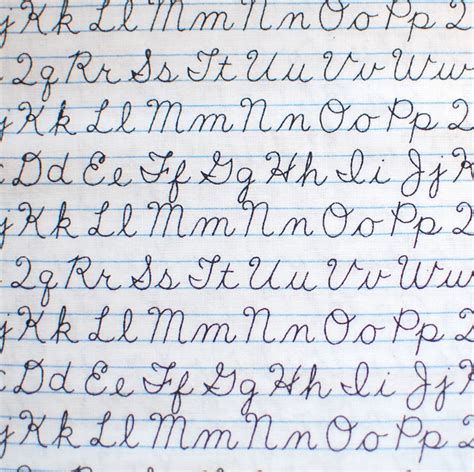 j Kk Ll Mm Nn Oo Pp Q
Qq Rr Ss Tt Uu Vv Ww
j Kk Ll Mm Nn Oo Pp Q
Dd Ee Ff Gg Hh Ii Jj K
j Kk Ll Mm Nn Oo Pp Q
Qq Rr Ss Tt Uu Vv Ww
j Kk Ll Mm Nn Oo Pp Q
Dd Ee Ff Gg Hh Ii Jj K
j Kk Ll Mm Nn Oo Pp Q